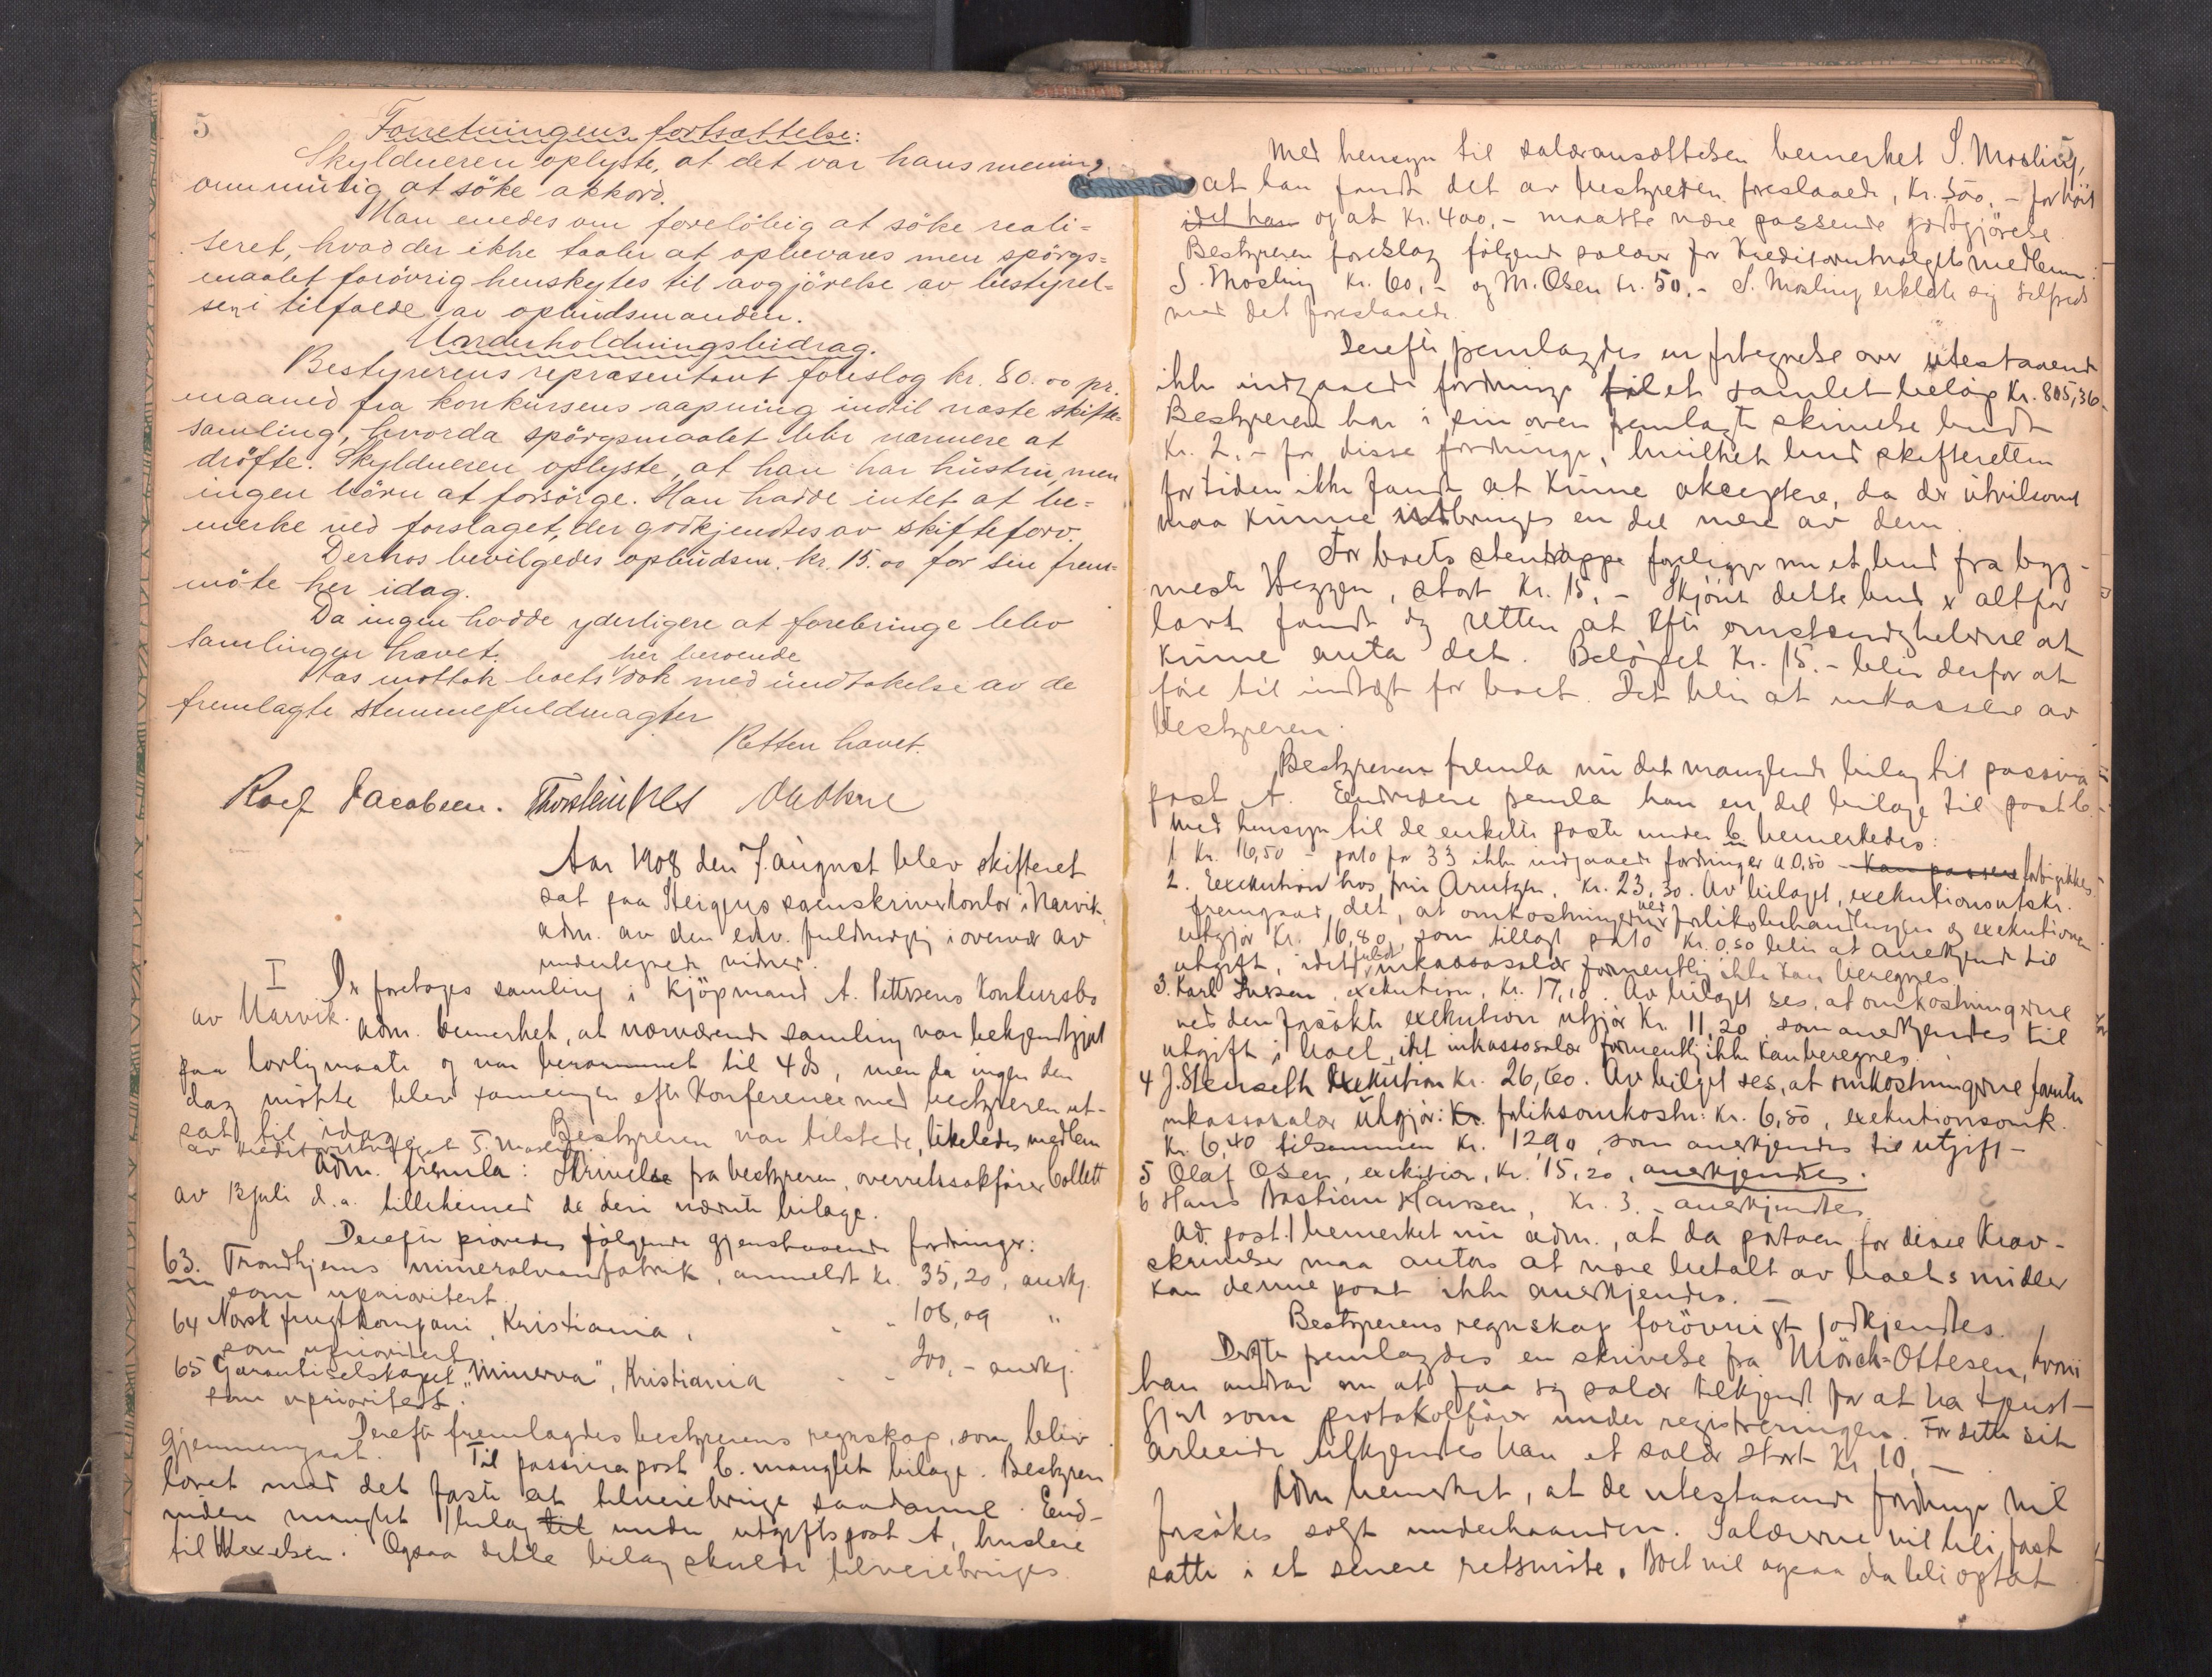 5
Forretningens fortsættelse:
Skyldneren oplyste, at det var hans mening
om mulig at söke akkord.
Man enedes om foreløbig at söke reali=
seret, hvad der ikke taaler at opbevares men spörgs=
maalet forövrig henskytes til avgjörelse av bestyrel=
sen i tilfælde av opbudsmanden.
Underholdningsbidrag.
Bestyrerens repræsentant foreslog kr. 80.00 pr.
maaned fra konkursens aapning indtil næste skifte=
samling, hvorda spörgsmaalet blir nærmere at
dröfte. Skyldneren oplyste, at han har hustru, men
ingen börn at forsörge. Han hadde intet at be=
merke ved forslaget, der godkjendtes av skifteforv.
Derhos bevilgedes opbudsm. kr. 15.00 for sin frem=
möte her idag.
Da ingen hadde yderligere at forebringe blev
samlingen hævet.
her beroende
Aas mottok boets dok med undtakelse av de
fremlagte stemmefuldmagter
Retten hævet.
Rolf Jacobsen.
Aar 1908 den 7. august blev skifteret
sat paa Steigens sorenskriverkontor i Narvik,
adm. av den edsv. fuldmægtig i overvær av
undertegnede vidner.
I Der foretoges samling i kjöpmand A. Pettersens konkursbo
av Narvik.
adm. bemerket, at nærværende samling var bekjendtgjort
paa lovlig maate og var berammet til 4 ds, men da ingen den
dag mötte blev samlingen efter konference med bestyreren ut-
sat til idag. Bestyreren var tilstede, likeledes medlem
av kreditorutvalget S. Mosling.
Adm. fremla: Skrivelse fra bestyreren, overretssakförer Collett
av 13 juli d.a. tillikemed de deri nævnte bilage.
Derefter prövedes fölgende gjenstaaende fordringer:
63. Trondhjems mineralvandfabrik, anmeldt kr. 35,20, anerkj.
som uprioritert.
64 Norsk frugtkompani, Kristiania, - - 108,09 "
som uprioritert
65 Garantiselskapet "Minerva", Kristiania - - 200,- anerkj.
som uprioritert.
Derefter fremlagdes bestyrerens regnskap, som blev
gjennemgaat. Til passiva post b. manglet bilage. Bestyreren
lovet med det förste at tilveiebringe saadanne. End-
videre manglet 1 bilag til under utgiftspost A, husleie
til Wexelsen. Ogsaa dette bilag skulde tilveiebringes.
5
Med hensyn til salæransættelsen bemerket S. Mosling,
at han fandt det av bestyreren foreslaaede, Kr. 500,- for höit
idet han og at Kr. 400,- maatte være passende godtgjörelse.
Bestyreren foreslog fölgende salær for Kreditorutvalgets medlemmer:
S. Mosling Kr. 60,- og M. Olsen kr. 50,- S. Mosling erklærte sig tilfreds
med det foreslaaede.
Derefter fremlagdes en fortegnelse over utestaaende
ikke indgaaede fordringer til et samlet belöp Kr. 805,36.
Bestyreren har i sin oven fremlagte skrivelse budt
Kr. 2,- for disse fordringer, hvilket bud skifteretten
for tiden ikke fandt at kunne akceptere, da der utvilsomt
maa kunne indbringes en del mere av dem.
For boets stentrappe foreligger nu et bud fra byg-
mester Heggen, stort Kr. 15,- Skjönt dette bud er altfor
lavt fandt dog retten at efter omstændighederne at
kunne anta det. Belöpet Kr. 15.- blir derfor at
före til indtægt for boet. Det blir at inkassere av
bestyreren.
Bestyreren fremla nu det manglende bilag til passiva
post A. Endvidere fremla han en del bilage til post b.
Med hensyn til de enkelte poster under b bemerkedes:
1 Kr. 16,50 - porto for 33 ikke indgaaede fordringer a 0,50 - Kan passere forbigikkes
2. Exekution hos fru Arntzen, Kr. 23,30. Av bilaget, exekutionsutskr.
fremgaar det, at omkostningerne ved forliksbehandlingen og exekutionen
utgjör Kr. 16,80, som tillagt porto Kr. 0,50 blir at anerkjende til
utgift, idet inkassosalær formentlig ikke kan beregnes.
3. Karl Larsen, exekution, Kr. 17,10. Av bilaget ses, at omkostningerne
ved den forsökte exekution utgjör Kr. 11,20 som anerkjendes til
utgift i boet, idet inkassosalær formentlig ikke kan beregnes.
4 J. Stenseth Exekution Kr. 26,60. Av bilaget ses, at omkostningerne foruten
inkassosalær utgjör: Kr. forliksomkostn: Kr. 6,50, exekutionsomk.
Kr. 6,40 tilsammen Kr. 12,90, som anerkjendes til utgift -
5 Olaf Olsen, exekution, Kr. 15,20, anerkjendtes.
6 Hans Bastian Hansen, Kr. 3.- anerkjendtes
Ad. post 1 bemerket nu adm., at da portoen for disse Krav-
skrivelser maa antas at være betalt av boets midler
kan denne post ikke anerkjendes. -
Bestyrerens regnskap forövrigt godkjendtes.
Derefter fremlagdes en skrivelse fra Mörch-Ottesen, hvori
han andrar om at faa sig salær tilkjendt for at ha tjenst-
gjort som protokolförer under registreringen. For dette sit
arbeide tilkjendtes han et salær stort Kr 10,-
Adm bemerket, at de utestaaende fordringer vil
forsökes solgt underhaanden. Salærerne vil bli fast
satte i et senere retsmöte. Boet vil ogsaa da bli optat